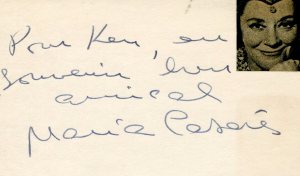 Pour Ken, en
souvenir bien
amical
Maria Casarès